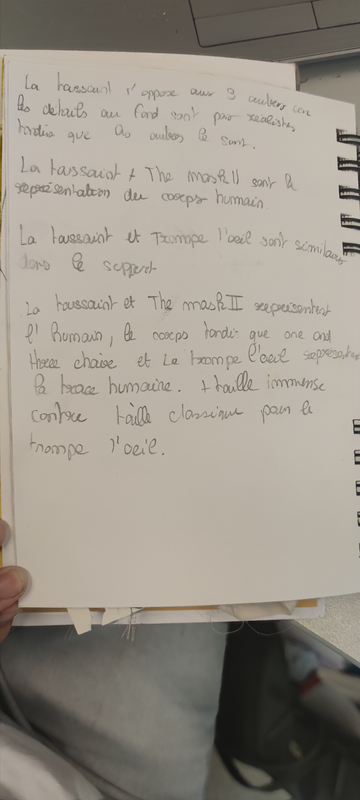 La toussaint s'oppose aux 3 autres car
les détails au fond sont pas réalistes
tandis que les autres le sont.
La toussaint + The mask II sont la
représentation du corps humain
La toussaint et Trompe l'oeil sont similaires
dans le support
La toussaint et The mask II représentent
l'humain, le corps tandis que one and
three chaise et Le trompe l'oeil représentent
la trace humaine. + taille immense
contre taille classique pour le
trompe l'oeil.